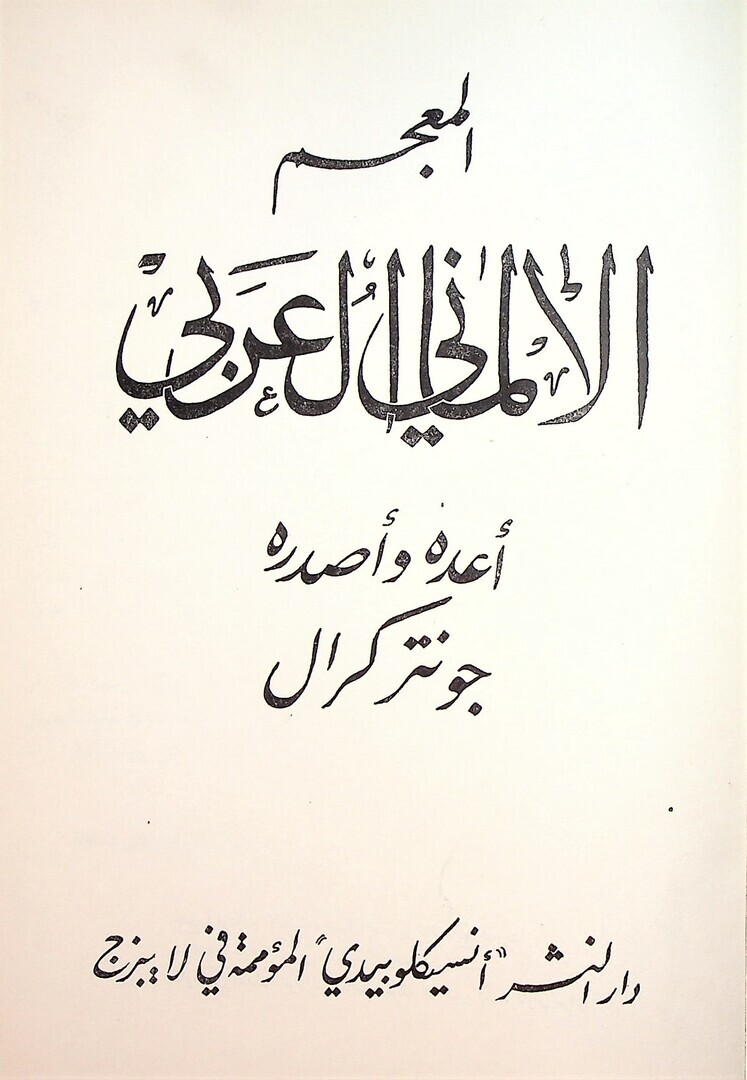 المعجم
الالماني العربي
أعده وأصدره
جونتر كرال
دار النشر "أنسيكلوبيدي" المؤممة في لايبزج